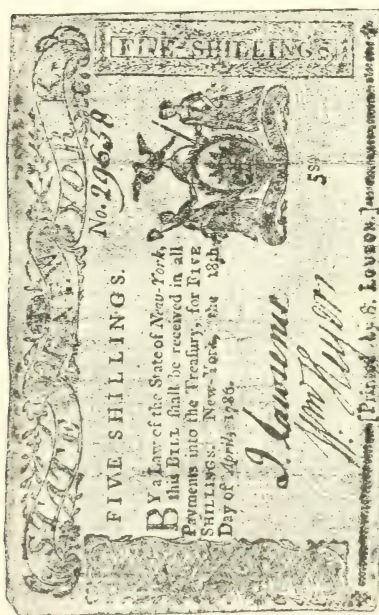 STATE OF NEW YORK.
FIVE SHILLINGS.
No. 29638
FIVE SHILLINGS.
BY a Law of the State of New-York,
this BILL shall be received in all
Payments into the Treasury, for FIVE
SHILLINGS. New-York, the 18th
Day of April, 1786.
5s
J Lawrence
Wm Heyer
[Printed by S. LOUDON.]